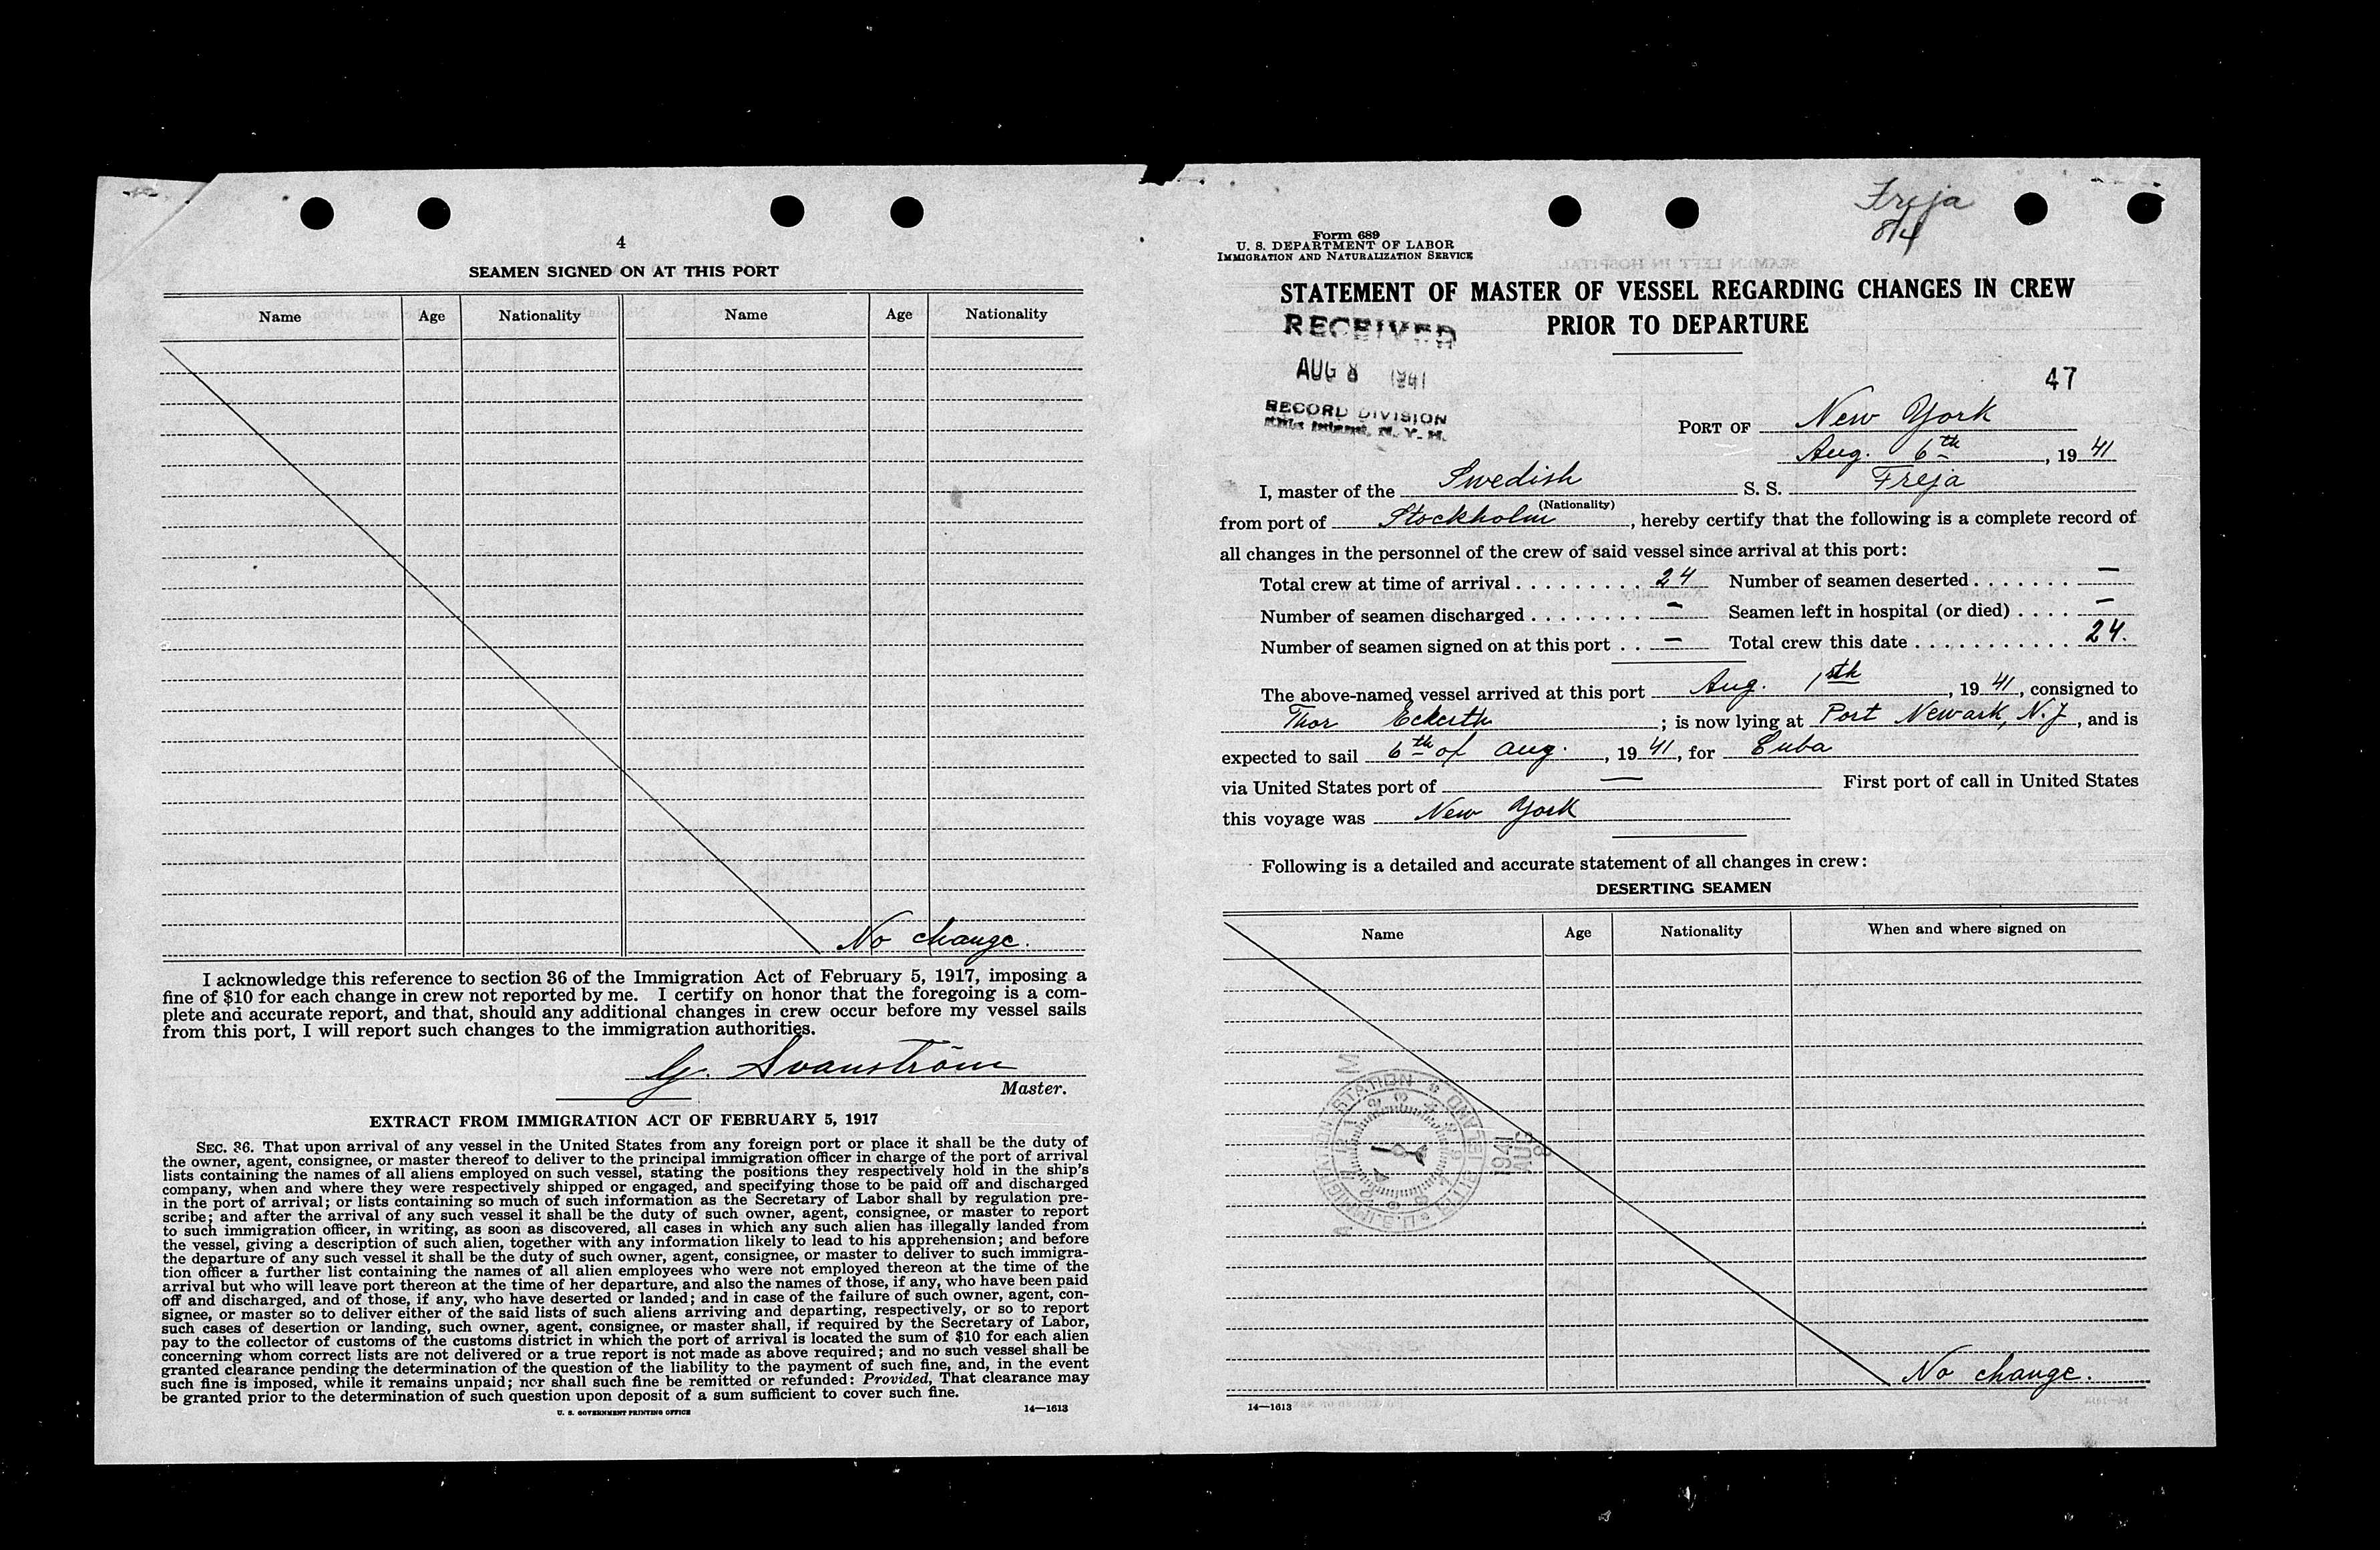 4
SEAMEN SIGNED ON AT THIS PORT
Name Age Nationality Name Age Nationality
No change.
I acknowledge this reference to section 36 of the Immigration Act of February 5, 1917, imposing a
fine of $10 for each change in crew not reported by me. I certify on honor that the foregoing is a com-
plete and accurate report, and that, should any additional changes in crew occur before my vessel sails
from this port, I will report such changes to the immigration authorities.
G. Svanström
Master.
EXTRACT FROM IMMIGRATION ACT OF FEBRUARY 5, 1917
SEC. 36. That upon arrival of any vessel in the United States from any foreign port or place it shall be the duty of
the owner, agent, consignee, or master thereof to deliver to the principal immigration officer in charge of the port of arrival
lists containing the names of all aliens employed on such vessel, stating the positions they respectively hold in the ship's
company, when and where they were respectively shipped or engaged, and specifying those to be paid off and discharged
in the port of arrival; or lists containing so much of such information as the Secretary of Labor shall by regulation pre-
scribe; and after the arrival of any such vessel it shall be the duty of such owner, agent, consignee, or master to report
to such immigration officer, in writing, as soon as discovered, all cases in which any such alien has illegally landed from
the vessel, giving a description of such alien, together with any information likely to lead to his apprehension; and before
the departure of any such vessel it shall be the duty of such owner, agent, consignee, or master to deliver to such immigra-
tion officer a further list containing the names of all alien employees who were not employed thereon at the time of the
arrival but who will leave port thereon at the time of her departure, and also the names of those, if any, who have been paid
off and discharged, and of those, if any, who have deserted or landed; and in case of the failure of such owner, agent, con-
signee, or master so to deliver either of the said lists of such aliens arriving and departing, respectively, or so to report
such cases of desertion or landing, such owner, agent, consignee, or master shall, if required by the Secretary of Labor,
pay to the collector of customs of the customs district in which the port of arrival is located the sum of $10 for each alien
concerning whom correct lists are not delivered or a true report is not made as above required; and no such vessel shall be
granted clearance pending the determination of the question of the liability to the payment of such fine, and, in the event
such fine is imposed, while it remains unpaid; nor shall such fine be remitted or refunded: Provided, That clearance may
be granted prior to the determination of such question upon deposit of a sum sufficient to cover such fine.
U. S. GOVERNMENT PRINTING OFFICE 14—1613
Freja
8/4
Form 689
U. S. DEPARTMENT OF LABOR
IMMIGRATION AND NATURALIZATION SERVICE
STATEMENT OF MASTER OF VESSEL REGARDING CHANGES IN CREW
PRIOR TO DEPARTURE
RECEIVED
AUG 8 1941
RECORD DIVISION
47
PORT OF New York
Aug. 6th, 1941
I, master of the Swedish S. S. Freja
(Nationality)
from port of Stockholm, hereby certify that the following is a complete record of
all changes in the personnel of the crew of said vessel since arrival at this port:
Total crew at time of arrival . . . . . . . . . 24 Number of seamen deserted . . . . . . . —
Number of seamen discharged . . . . . . . . — Seamen left in hospital (or died) . . . . —
Number of seamen signed on at this port . . — Total crew this date . . . . . . . . . . . 24.
The above-named vessel arrived at this port Aug. 1sth, 1941, consigned to
Thor Eckerth; is now lying at Port Newark, N.J, and is
expected to sail 6th of Aug., 1941, for Cuba
via United States port of — First port of call in United States
this voyage was New York
Following is a detailed and accurate statement of all changes in crew:
DESERTING SEAMEN
Name Age Nationality When and where signed on
1941
AUG
8
No change.
14—1613